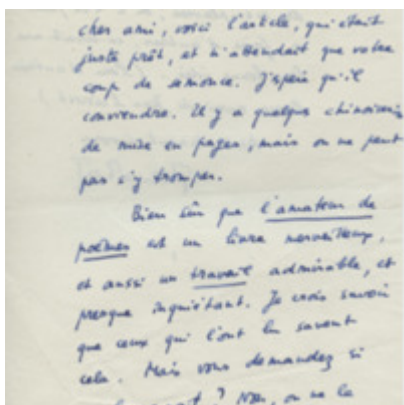 cher ami, voici l'article, qui était
juste prêt, et n'attendait que votre
coup de semonce. J'espère qu'il
conviendra. Il y a quelques chinoiseries
de mise en pages, mais on ne peut
pas s'y tromper.
Bien sûr que l'amateur de
poèmes est un livre merveilleux,
et aussi un travail admirable, et
presque inquiétant. Je crois savoir
que ceux qui l'ont lu savent
cela. Mais vous demandez si
? Non, on ne le